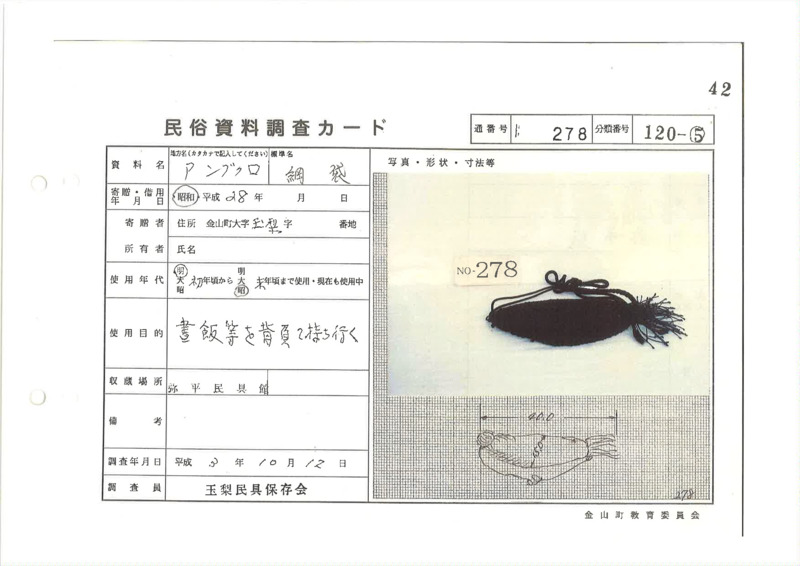 42
民俗資料調査カード
通番号 278 分類番号 120-⑤
資料名 地方名(カタカナで記入してください) アンブクロ 標準名 網袋
寄贈・借用年月日 昭和 平成 28年 月 日
寄贈者 住所 金山町大字玉梨字 番地
所有者 氏名
使用年代 明大昭 初年頃から 明大昭 末年頃まで使用・現在も使用中
使用目的 晝飯等を背負って持ち行く
収蔵場所 弥平民具館
備考
調査年月日 平成 3年 10月 12日
調査員 玉梨民具保存会
写真・形状・寸法等
NO-278
40.0
278
金山町教育委員会